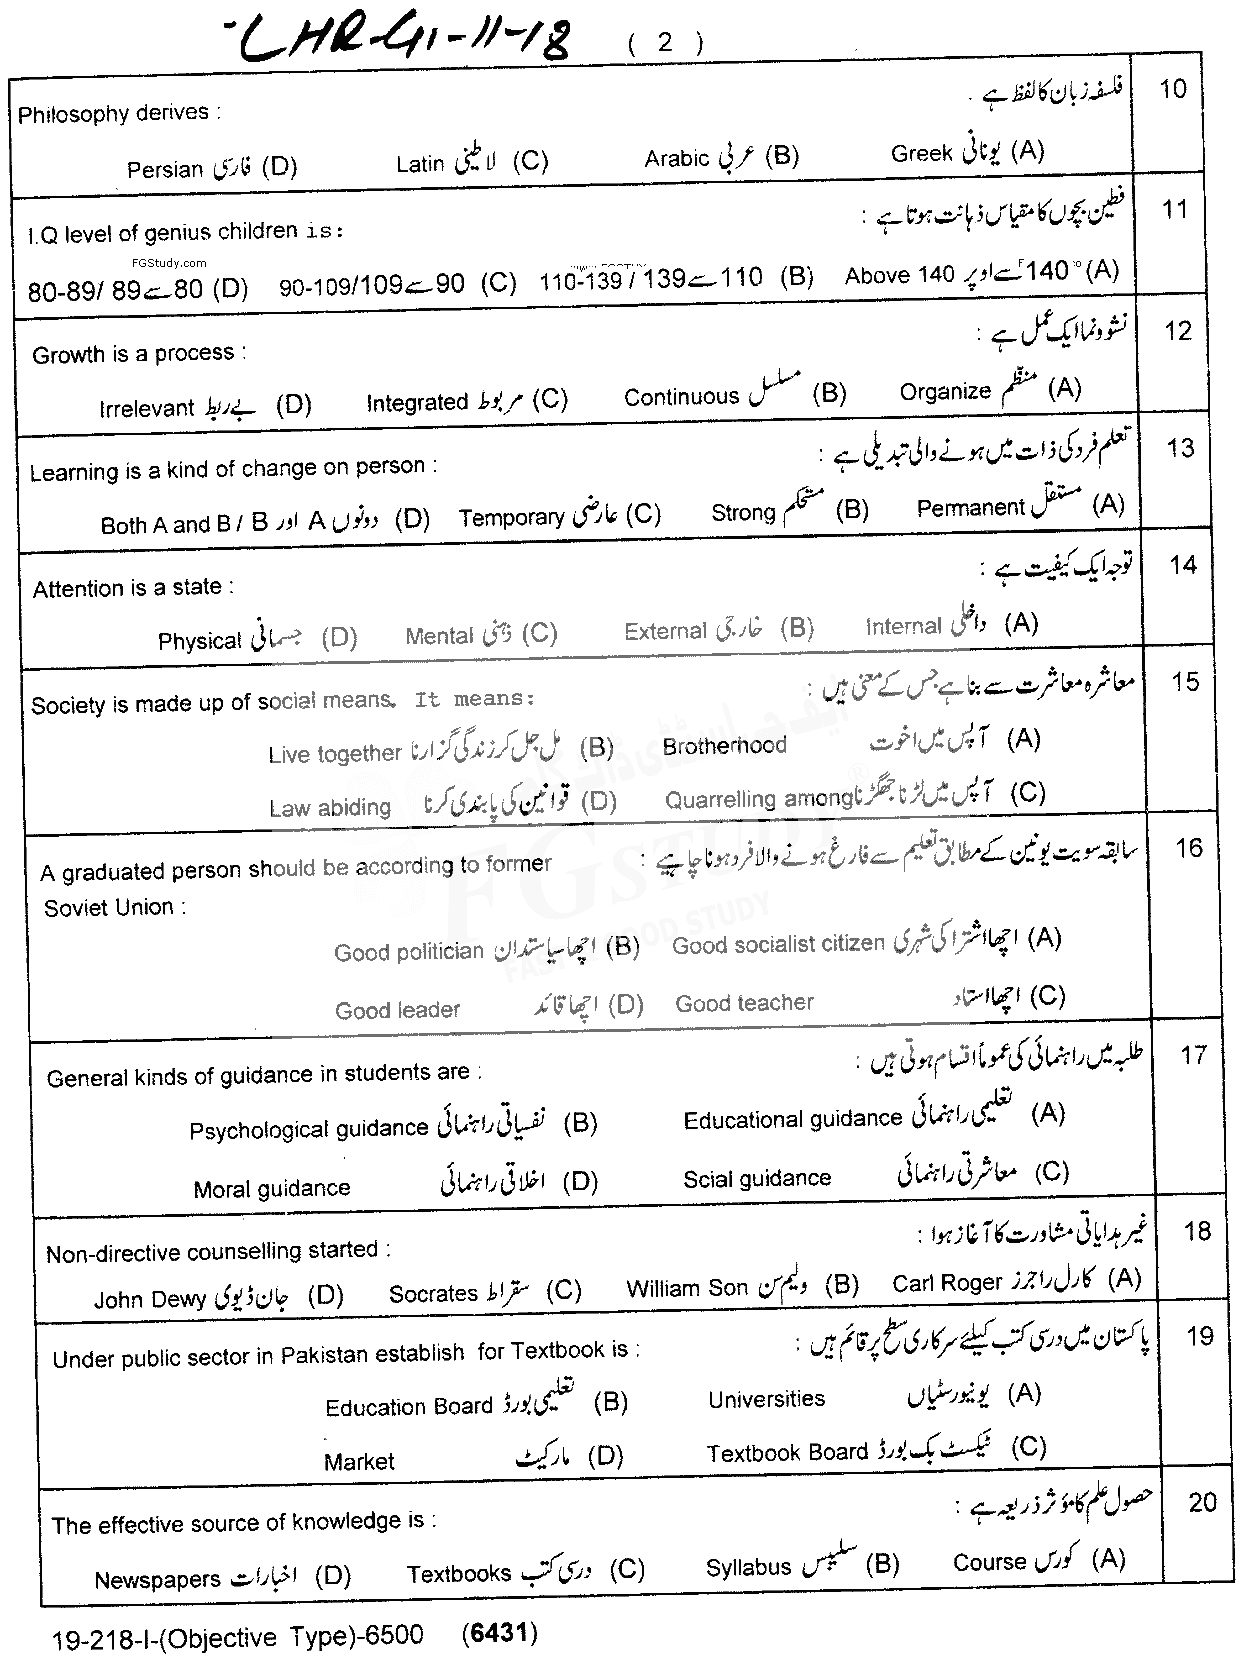 LHR-G1-11-18 ( 2 )
10 فلسفہ زبان کا لفظ ہے .
Philosophy derives :
(A) یونانی Greek (B) عربی Arabic (C) لاطینی Latin (D) فارسی Persian
11 فطین بچوں کا مقیاس ذہانت ہوتا ہے :
I.Q level of genius children is:
FGStudy.com
(A) 140 سے اوپر Above 140 (B) 110 سے 139 / 110-139 (C) 90 سے 109/ 90-109 (D) 80 سے 89 /80-89
12 نشوونما ایک عمل ہے :
Growth is a process :
(A) منظّم Organize (B) مسلسل Continuous (C) مربوط Integrated (D) بے ربط Irrelevant
13 تعلم فرد کی ذات میں ہونے والی تبدیلی ہے :
Learning is a kind of change on person :
(A) مستقل Permanent (B) مستحکم Strong (C) عارضی Temporary (D) دونوں A اور B / Both A and B
14 توجہ ایک کیفیت ہے :
Attention is a state :
(A) داخلی Internal (B) خارجی External (C) ذہنی Mental (D) جسمانی Physical
15 معاشرہ معاشرت سے بنا ہے جس کے معنی ہیں :
Society is made up of social means. It means:
(A) آپس میں اخوت Brotherhood (B) مل جل کر زندگی گزارنا Live together
(C) آپس میں لڑنا جھگڑنا Quarrelling among (D) قوانین کی پابندی کرنا Law abiding
16 سابقہ سویت یونین کے مطابق تعلیم سے فارغ ہونے والا فرد ہونا چاہیے :
A graduated person should be according to former
Soviet Union :
(A) اچھا اشتراکی شہری Good socialist citizen (B) اچھا سیاستدان Good politician
(C) اچھا استاد Good teacher (D) اچھا قائد Good leader
FGSTUDY
FAST & GOOD STUDY
17 طلبہ میں راہنمائی کی عموماً اقسام ہوتی ہیں :
General kinds of guidance in students are :
(A) تعلیمی راہنمائی Educational guidance (B) نفسیاتی راہنمائی Psychological guidance
(C) معاشرتی راہنمائی Scial guidance (D) اخلاقی راہنمائی Moral guidance
18 غیر ہدایاتی مشاورت کا آغاز ہوا :
Non-directive counselling started :
(A) کارل راجرز Carl Roger (B) ولیم سن William Son (C) سقراط Socrates (D) جان ڈیوی John Dewy
19 پاکستان میں درسی کتب کیلئے سرکاری سطح پر قائم ہیں :
Under public sector in Pakistan establish for Textbook is :
(A) یونیورسٹیاں Universities (B) تعلیمی بورڈ Education Board
(C) ٹیکسٹ بک بورڈ Textbook Board (D) مارکیٹ Market
20 حصول علم کا مؤثر ذریعہ ہے :
The effective source of knowledge is :
(A) کورس Course (B) سلیبس Syllabus (C) درسی کتب Textbooks (D) اخبارات Newspapers
19-218-I-(Objective Type)-6500 (6431)